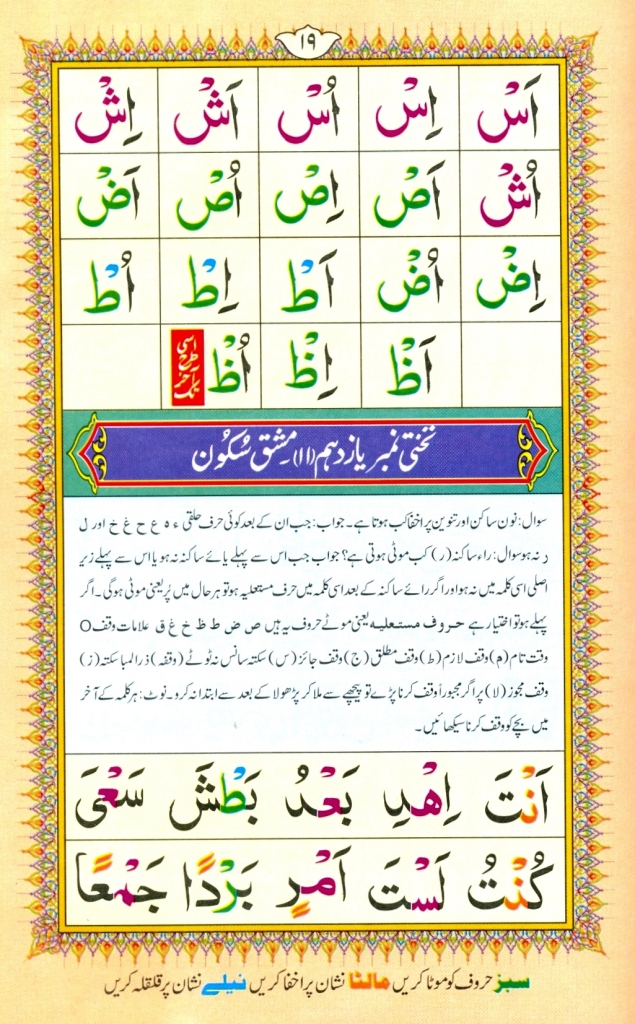 ١٩
اَسْ اِسْ اُسْ اَشْ اِشْ
اُشْ اَصْ اِصْ اُصْ اَضْ
اِضْ اُضْ اَطْ اِطْ اُطْ
اَظْ اِظْ اُظْ اسی طرح آخر تک
تختی نمبر یازدہم (۱۱)۔ مشق سُکُون
سوال: نون ساکن اور تنوین پر اخفا کب ہوتا ہے۔ جواب: جب ان کے بعد کوئی حرف حلقی ء ہ ع ح غ خ اور ل
ر نہ ہو سوال: راء ساکنہ (ر) کب موٹی ہوتی ہے؟ جواب جب اس سے پہلے یائے ساکنہ نہ ہو یا اس سے پہلے زیر
اصلی اسی کلمہ میں نہ ہو اور اگر رائے ساکنہ کے بعد اسی کلمہ میں حرف مستعلیہ ہو تو ہر حال میں پُر یعنی موٹی ہوگی۔ اگر
پہلے ہو تو اختیار ہے حروف مستعلیہ یعنی موٹے حروف یہ ہیں ص ض ط ظ خ غ ق علامات وقف O
وقت تام (م) وقف لازم (ط) وقف مطلق (ج) وقف جائز (س) سکتہ سانس نہ ٹوٹے (وقفہ) ذرا لمبا سکتہ (ز)
وقف مجوز (لا) پر اگر مجبوراً وقف کرنا پڑے تو پیچھے سے ملا کر پڑھو لا کے بعد سے ابتدا نہ کرو۔ نوٹ: ہر کلمہ کے آخر
میں بچے کو وقف کرنا سیکھائیں۔
اَنْتَ اِهْدِ بَعْدُ بَطْشَ سَعْیَ
كُنْتُ لَسْتَ اَمْرٍ بَرْدًا جَمْعًا
سبز حروف کو موٹا کریں مالٹا نشان پر اخفا کریں نیلے نشان پر قلقلہ کریں